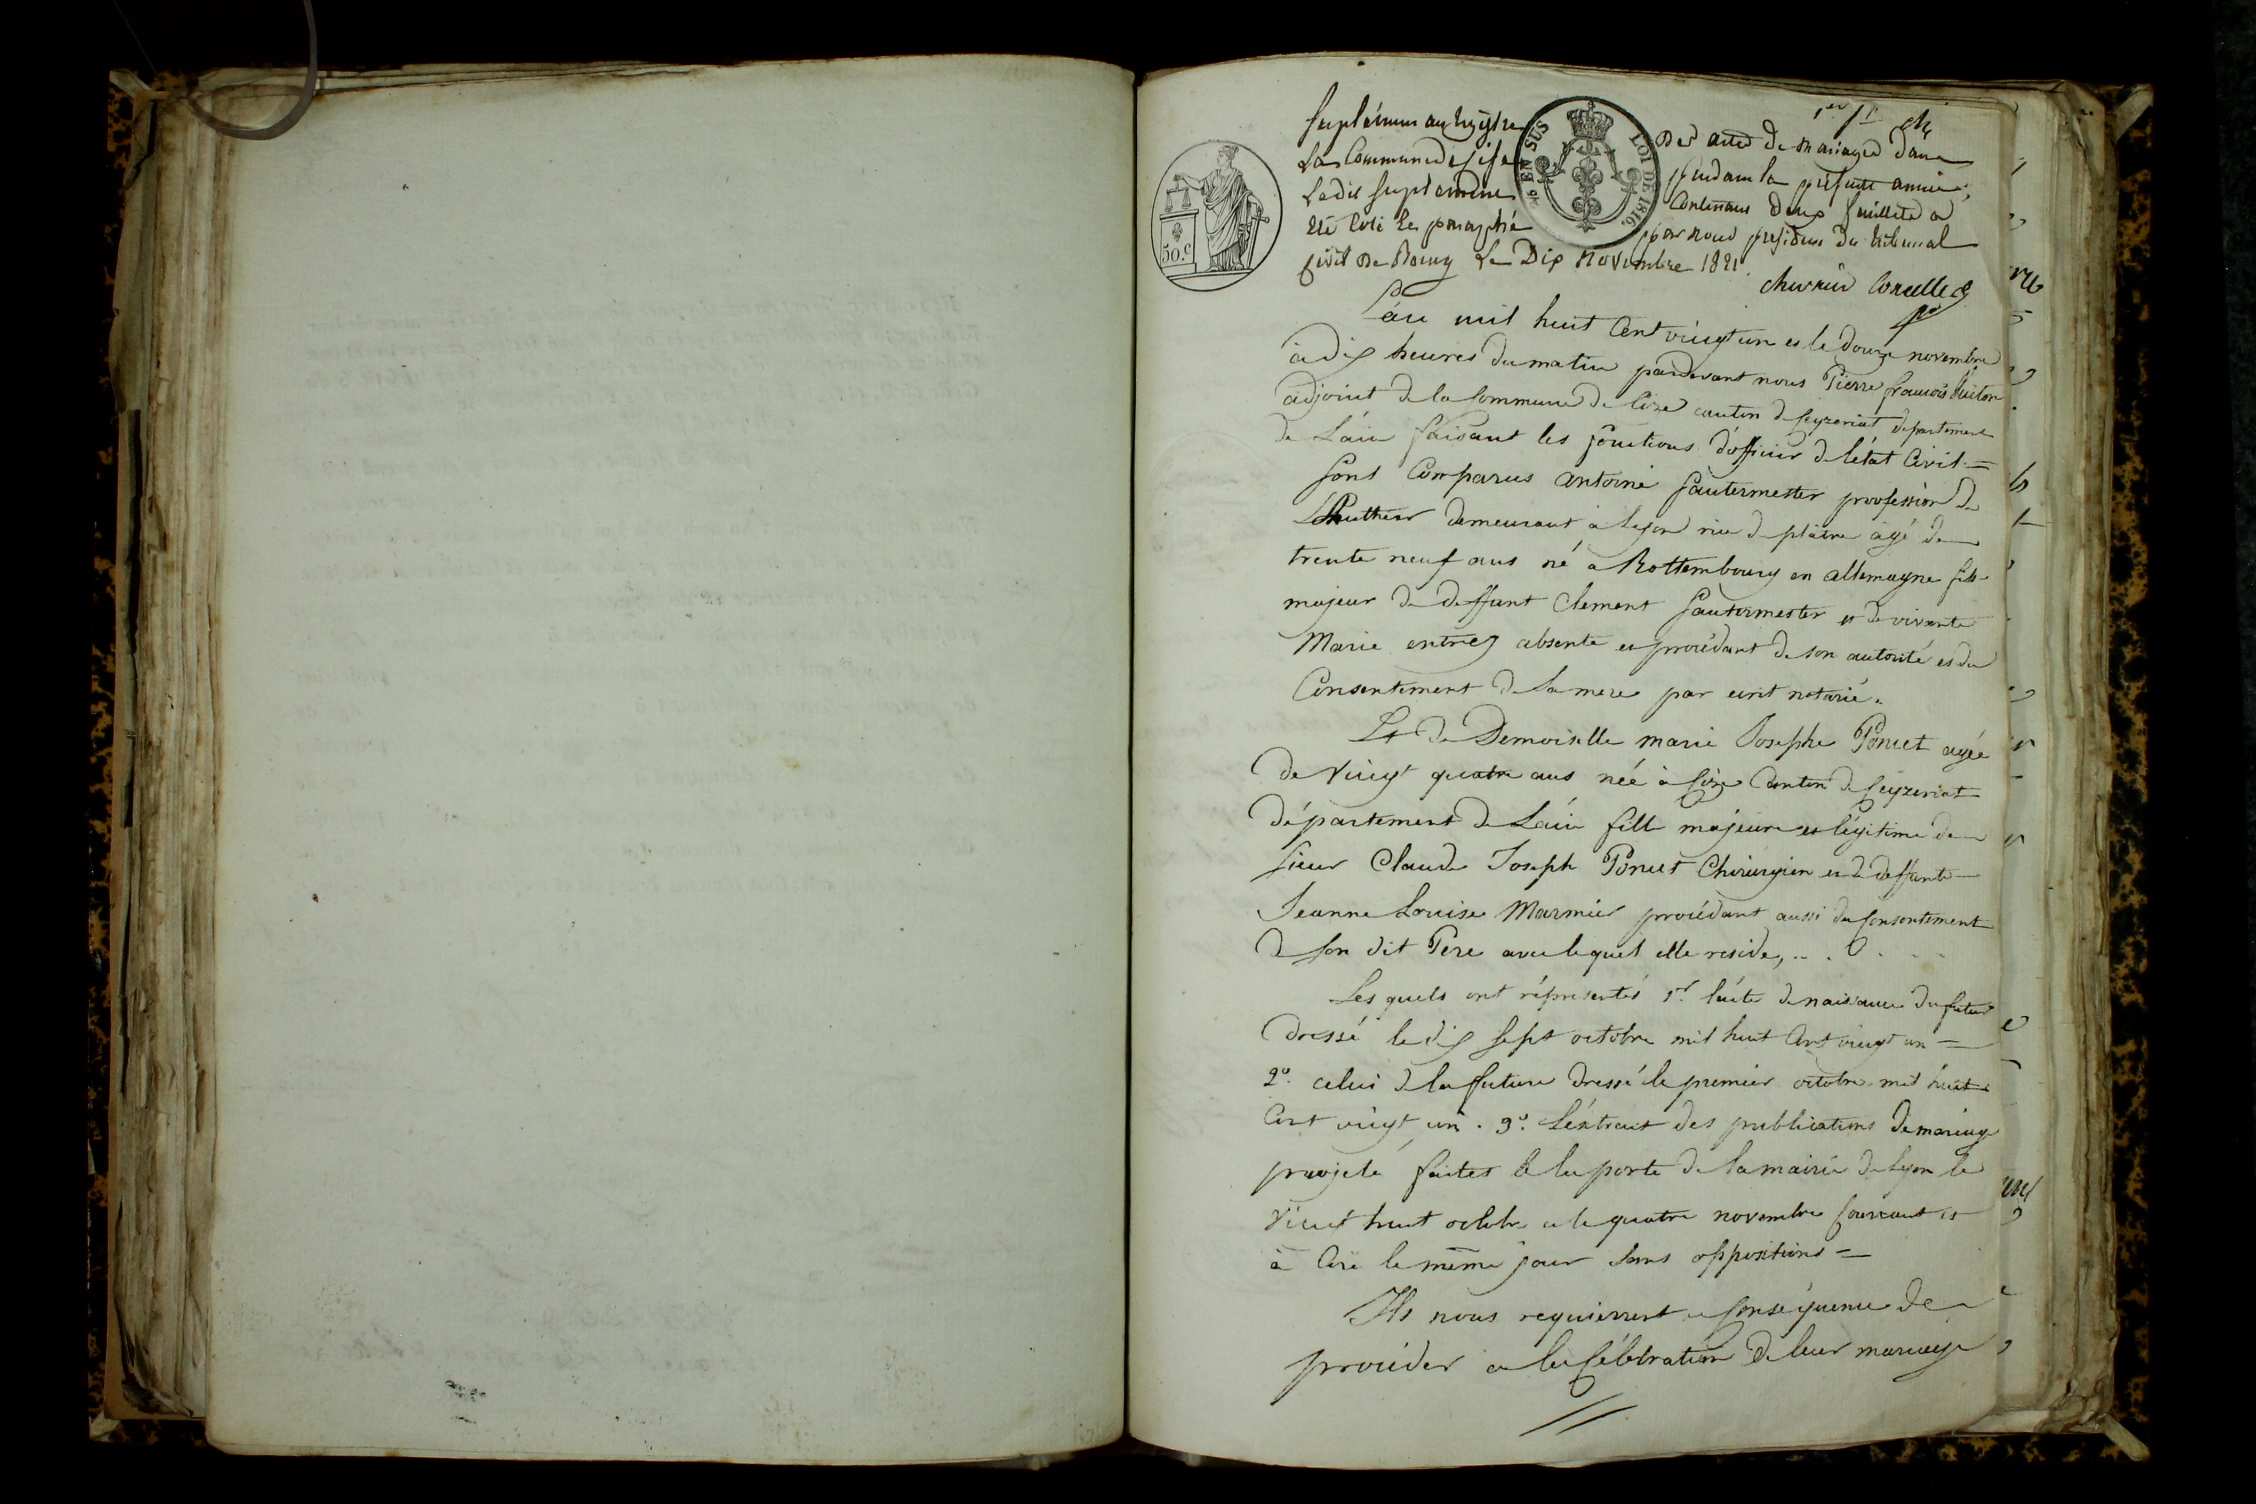 1er f.t ch
Suplément au Registre Des actes de mariages Dans
La Commune de Sise pendant la présente année,
Ledit Suplement Contenant Deux feuillets a
été Coté et paraphé par nous président du tribunal
Civil De Bourg Le Dix Novembre 1821
chevrier Corcelles
EN SUS LOI DE 1816.
50.c
L'an mil huit Cent vingt un et le douze novembre
à dix heures du matin pardevant nous Pierre françois
adjoint de la Commune de Cize canton de Ceyzeriat departement
de L'ain faisant les fonctions d'officier de l'état Civil =
Sont Comparus Antoine Sautermester proofession de
Lutheur demeurant à Lyon rue de plâtre âgé de
trente neuf ans né a Rottembourg en allemagne fils
majeur de deffunt Clement Sautermester et de vivante
Marie absente et procédant de son autorité et du
Consentement de Sa mere par ecrit notarié.
Et de Demoiselle marie Josephe Poncet agée
de vingt quatre ans née à Cize Canton de Ceyzeriat
département de L'ain fille majeure et légitime de
Sieur Claude Joseph Poncet Chirurgien et de deffunte
Jeanne Louise Marmier procédant aussi du Consentement
de Son dit Pere avec lequel elle reside, ..
Les quels ont répresentés 1.t l'acte de naissance du futur
dressé le dix Sept octobre mil huit Cent vingt un =
2.o celui de la future dressé le premier octobre mil huit
Cent vingt un . 3.o L'éxtrait des publications de mariage
proojeté faites à la porte de la mairie de Lyon le
vingt huit octobre et le quatre novembre Courant et
à Cize le même jour Sans oppositions =
Ils nous requierrent en Conséquence de
procéder a la Célébration de leur mariage